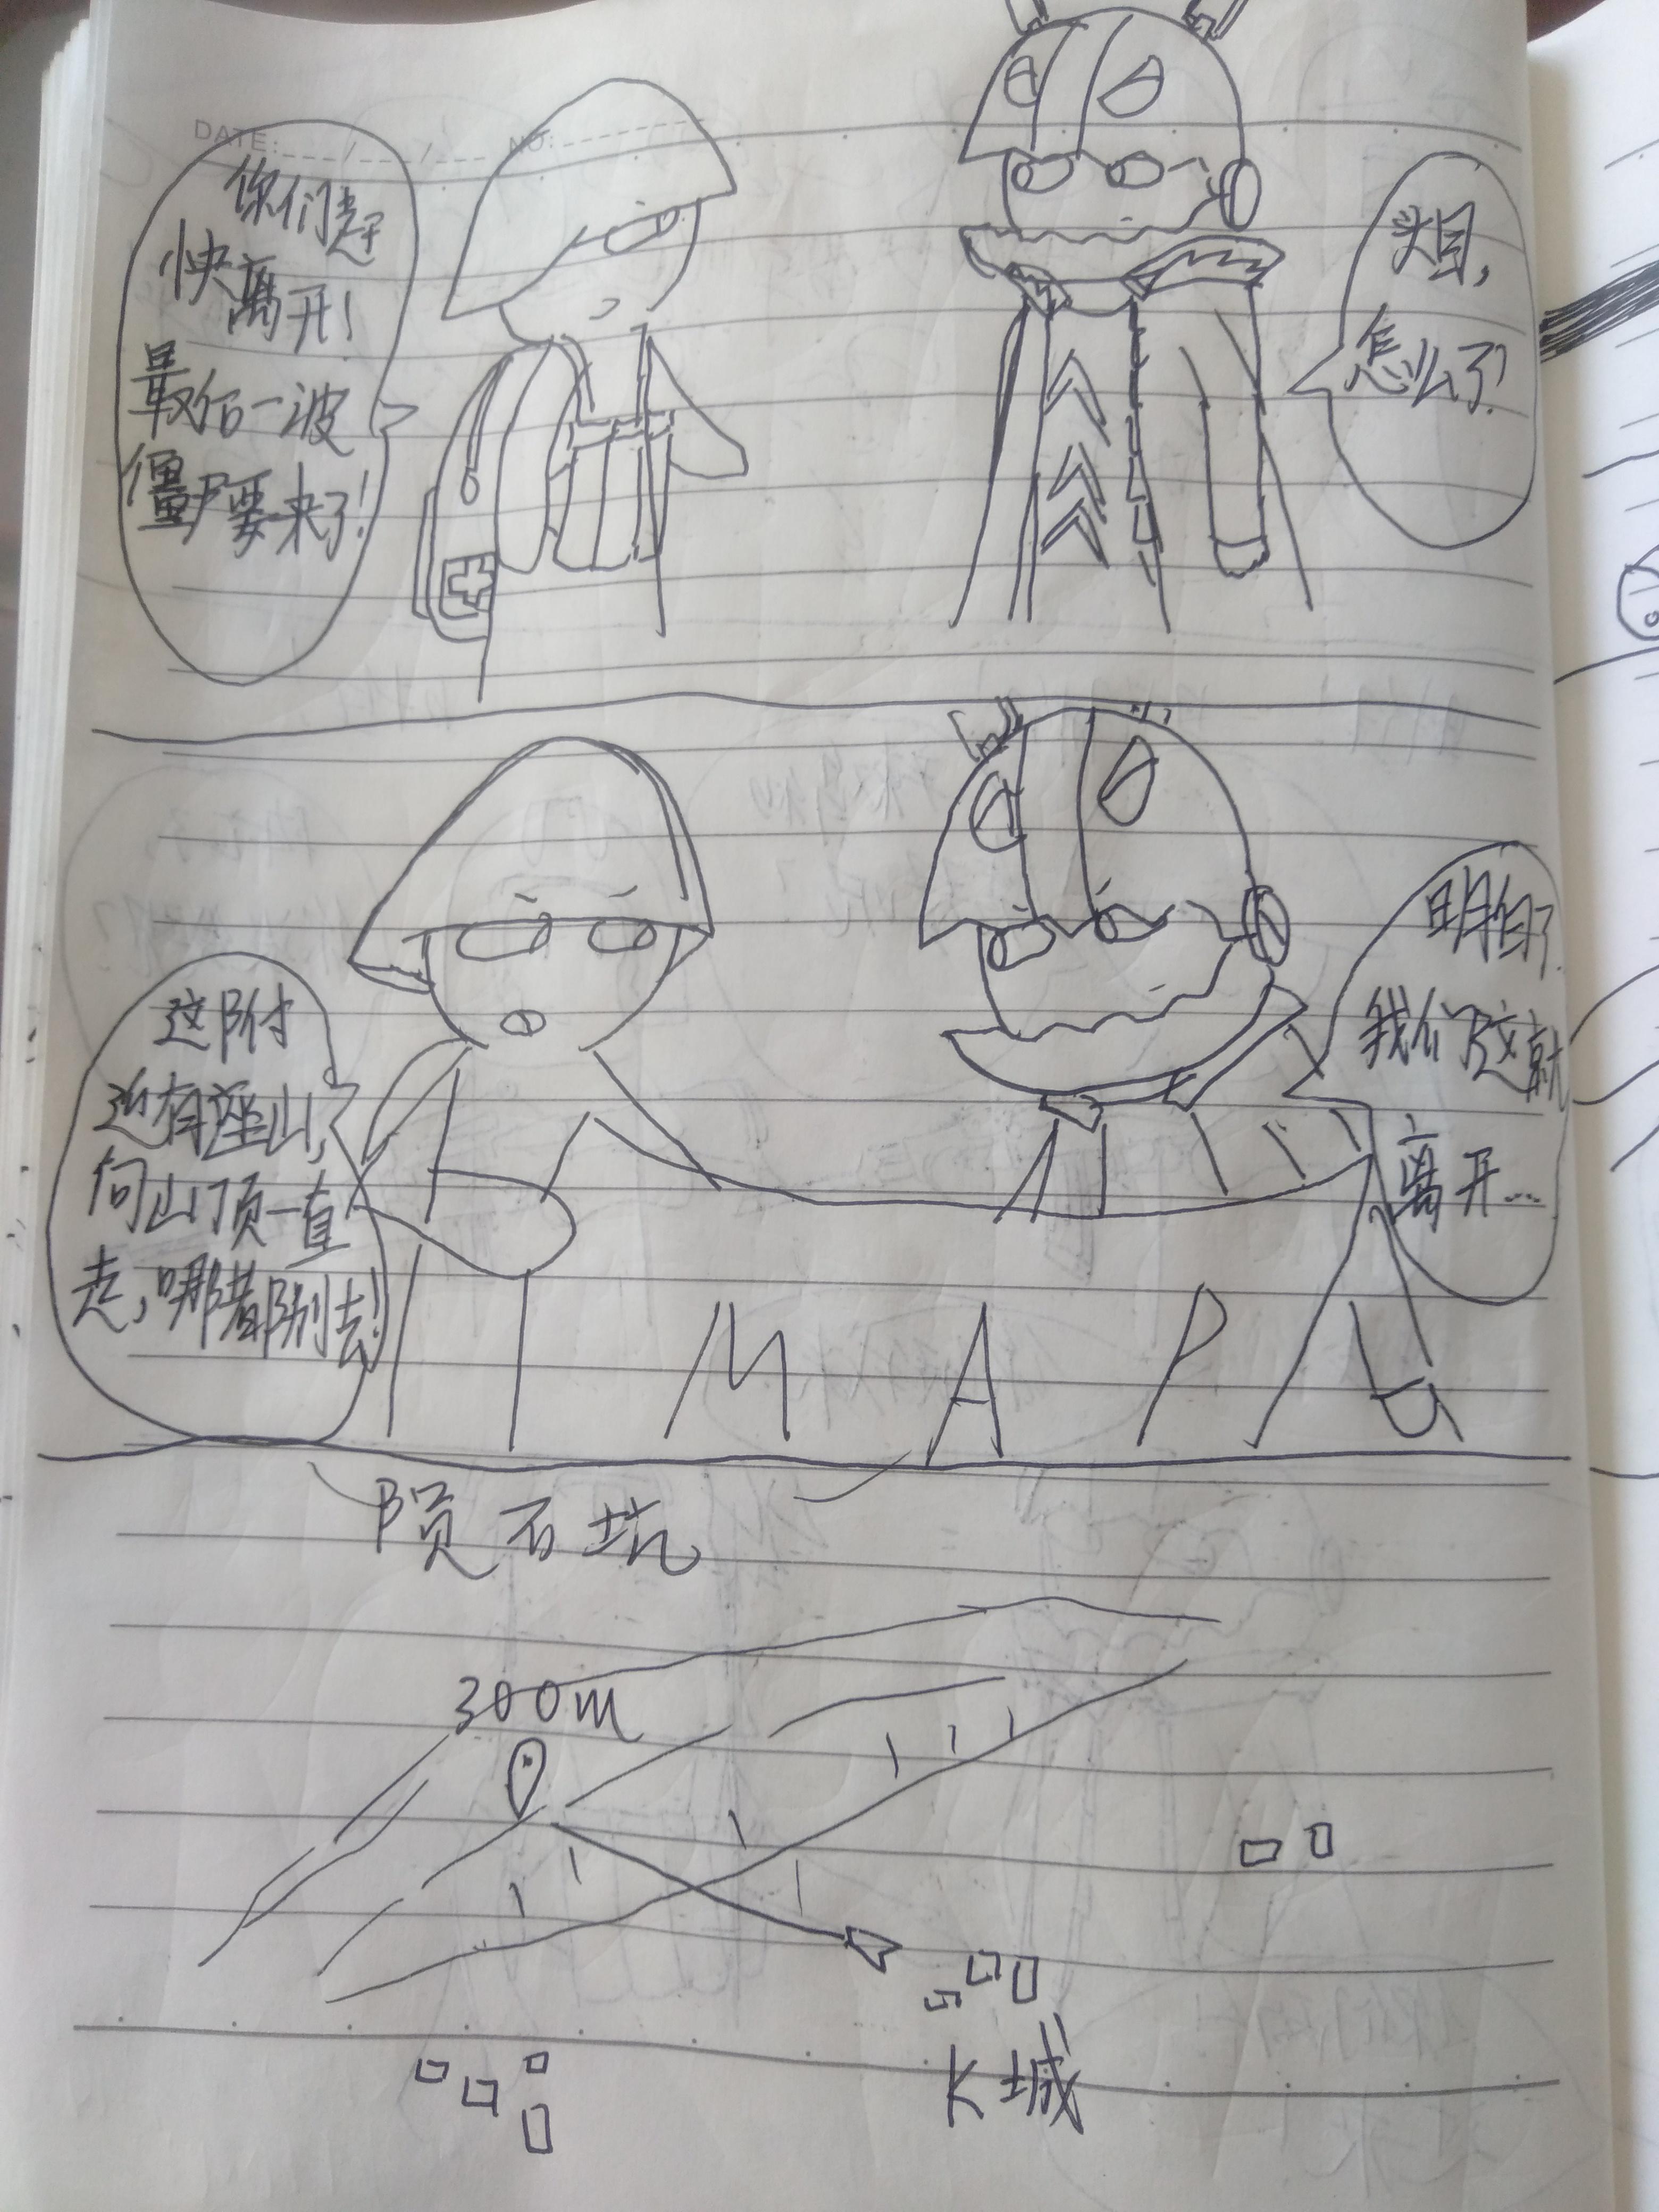 DATE: / / NO:
你们赶
快离开!
最后一波
僵尸要来了!
头目,
怎么了?
这附
近有座山,
向山顶一直
走,哪都别去!
明白了.
我们这就
离开...
M A P
陨石坑
300m
K城